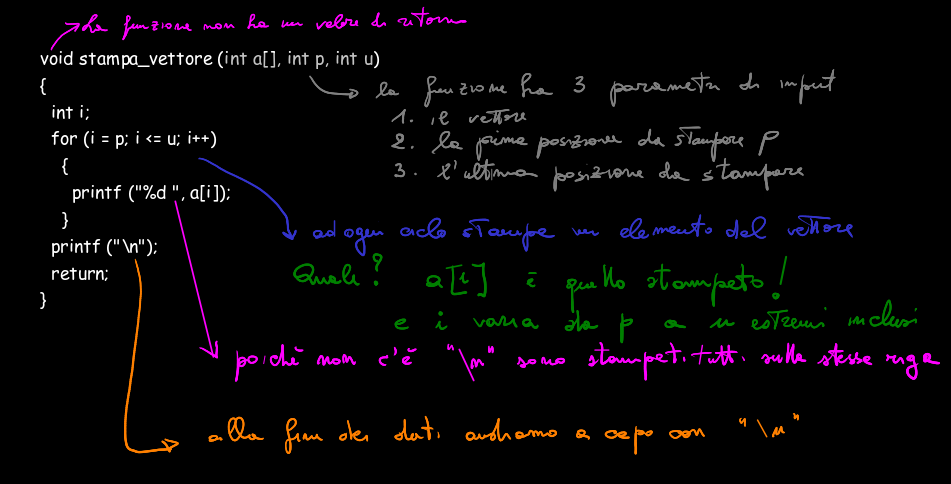 La funzione non ha un valore di ritorno
void stampa_vettore (int a[], int p, int u)
{
int i;
for (i = p; i <= u; i++)
{
printf ("%d ", a[i]);
}
printf ("\n");
return;
}
la funzione ha 3 parametri di input
1. il vettore
2. la prima posizione da stampare p
3. l'ultima posizione da stampare
ad ogni ciclo stampa un elemento del vettore
Quali? a[i] è quello stampato!
e i varia da p a u estremi inclusi
poichè non c'è "\n" sono stampati tutti sulla stessa riga
alla fine dei dati andiamo a capo con "\n"